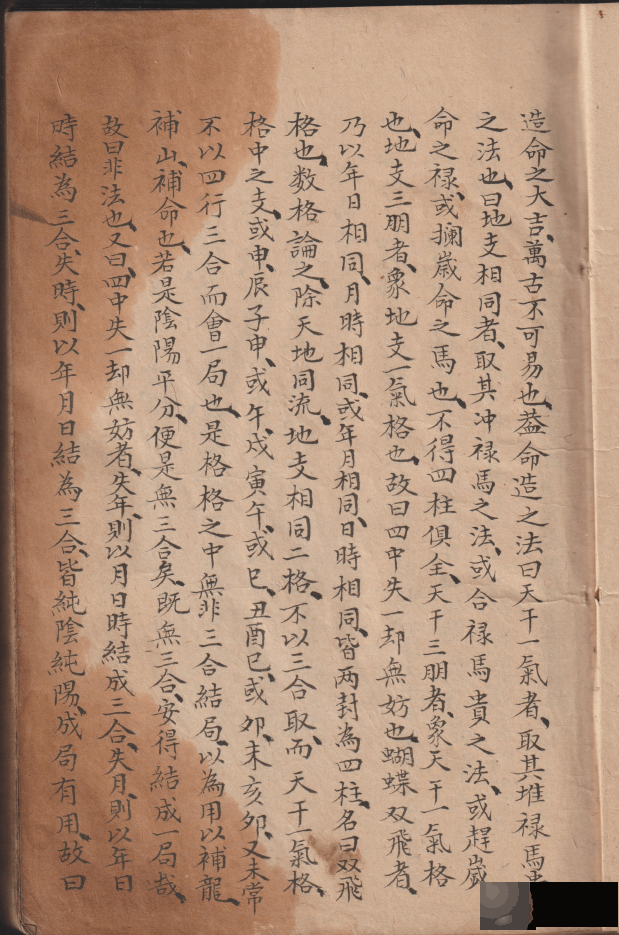 造命之大吉、萬古不可易也、葢命造之法曰天干一氣者、取其堆祿馬
之法也、曰地支相同者、取其冲祿馬之法、或合祿馬貴之法、或趕歲
命之禄、或攔歲命之馬也、不得四柱俱全、天干三朋者、象天干一氣格
也、地支三朋者、象地支一氣格也、故曰四中失一却無妨也、蝴蝶双飛者、
乃以年日相同、月時相同、或年月相同、日時相同、皆两封為四柱、名曰双飛
格也、数格論之、除天地同流、地支相同二格、不以三合取、而天干一氣格、
格中之支、或申、辰子申、或午、戍寅午、或巳、丑酉巳、或卯、未亥卯、又未常
不以四行三合而會一局也、是格格之中無非三合結局、以為用以補龍、
補山、補命也、若是陰陽平分、便是無三合矣、既無三合、安得結成一局哉、
故曰非法也、又曰、四中失一却無妨者、失年、則以月日時結成三合、失月、則以年日
時結為三合、失時、則以年月日結為三合、皆純陰純陽、成局有用、故曰